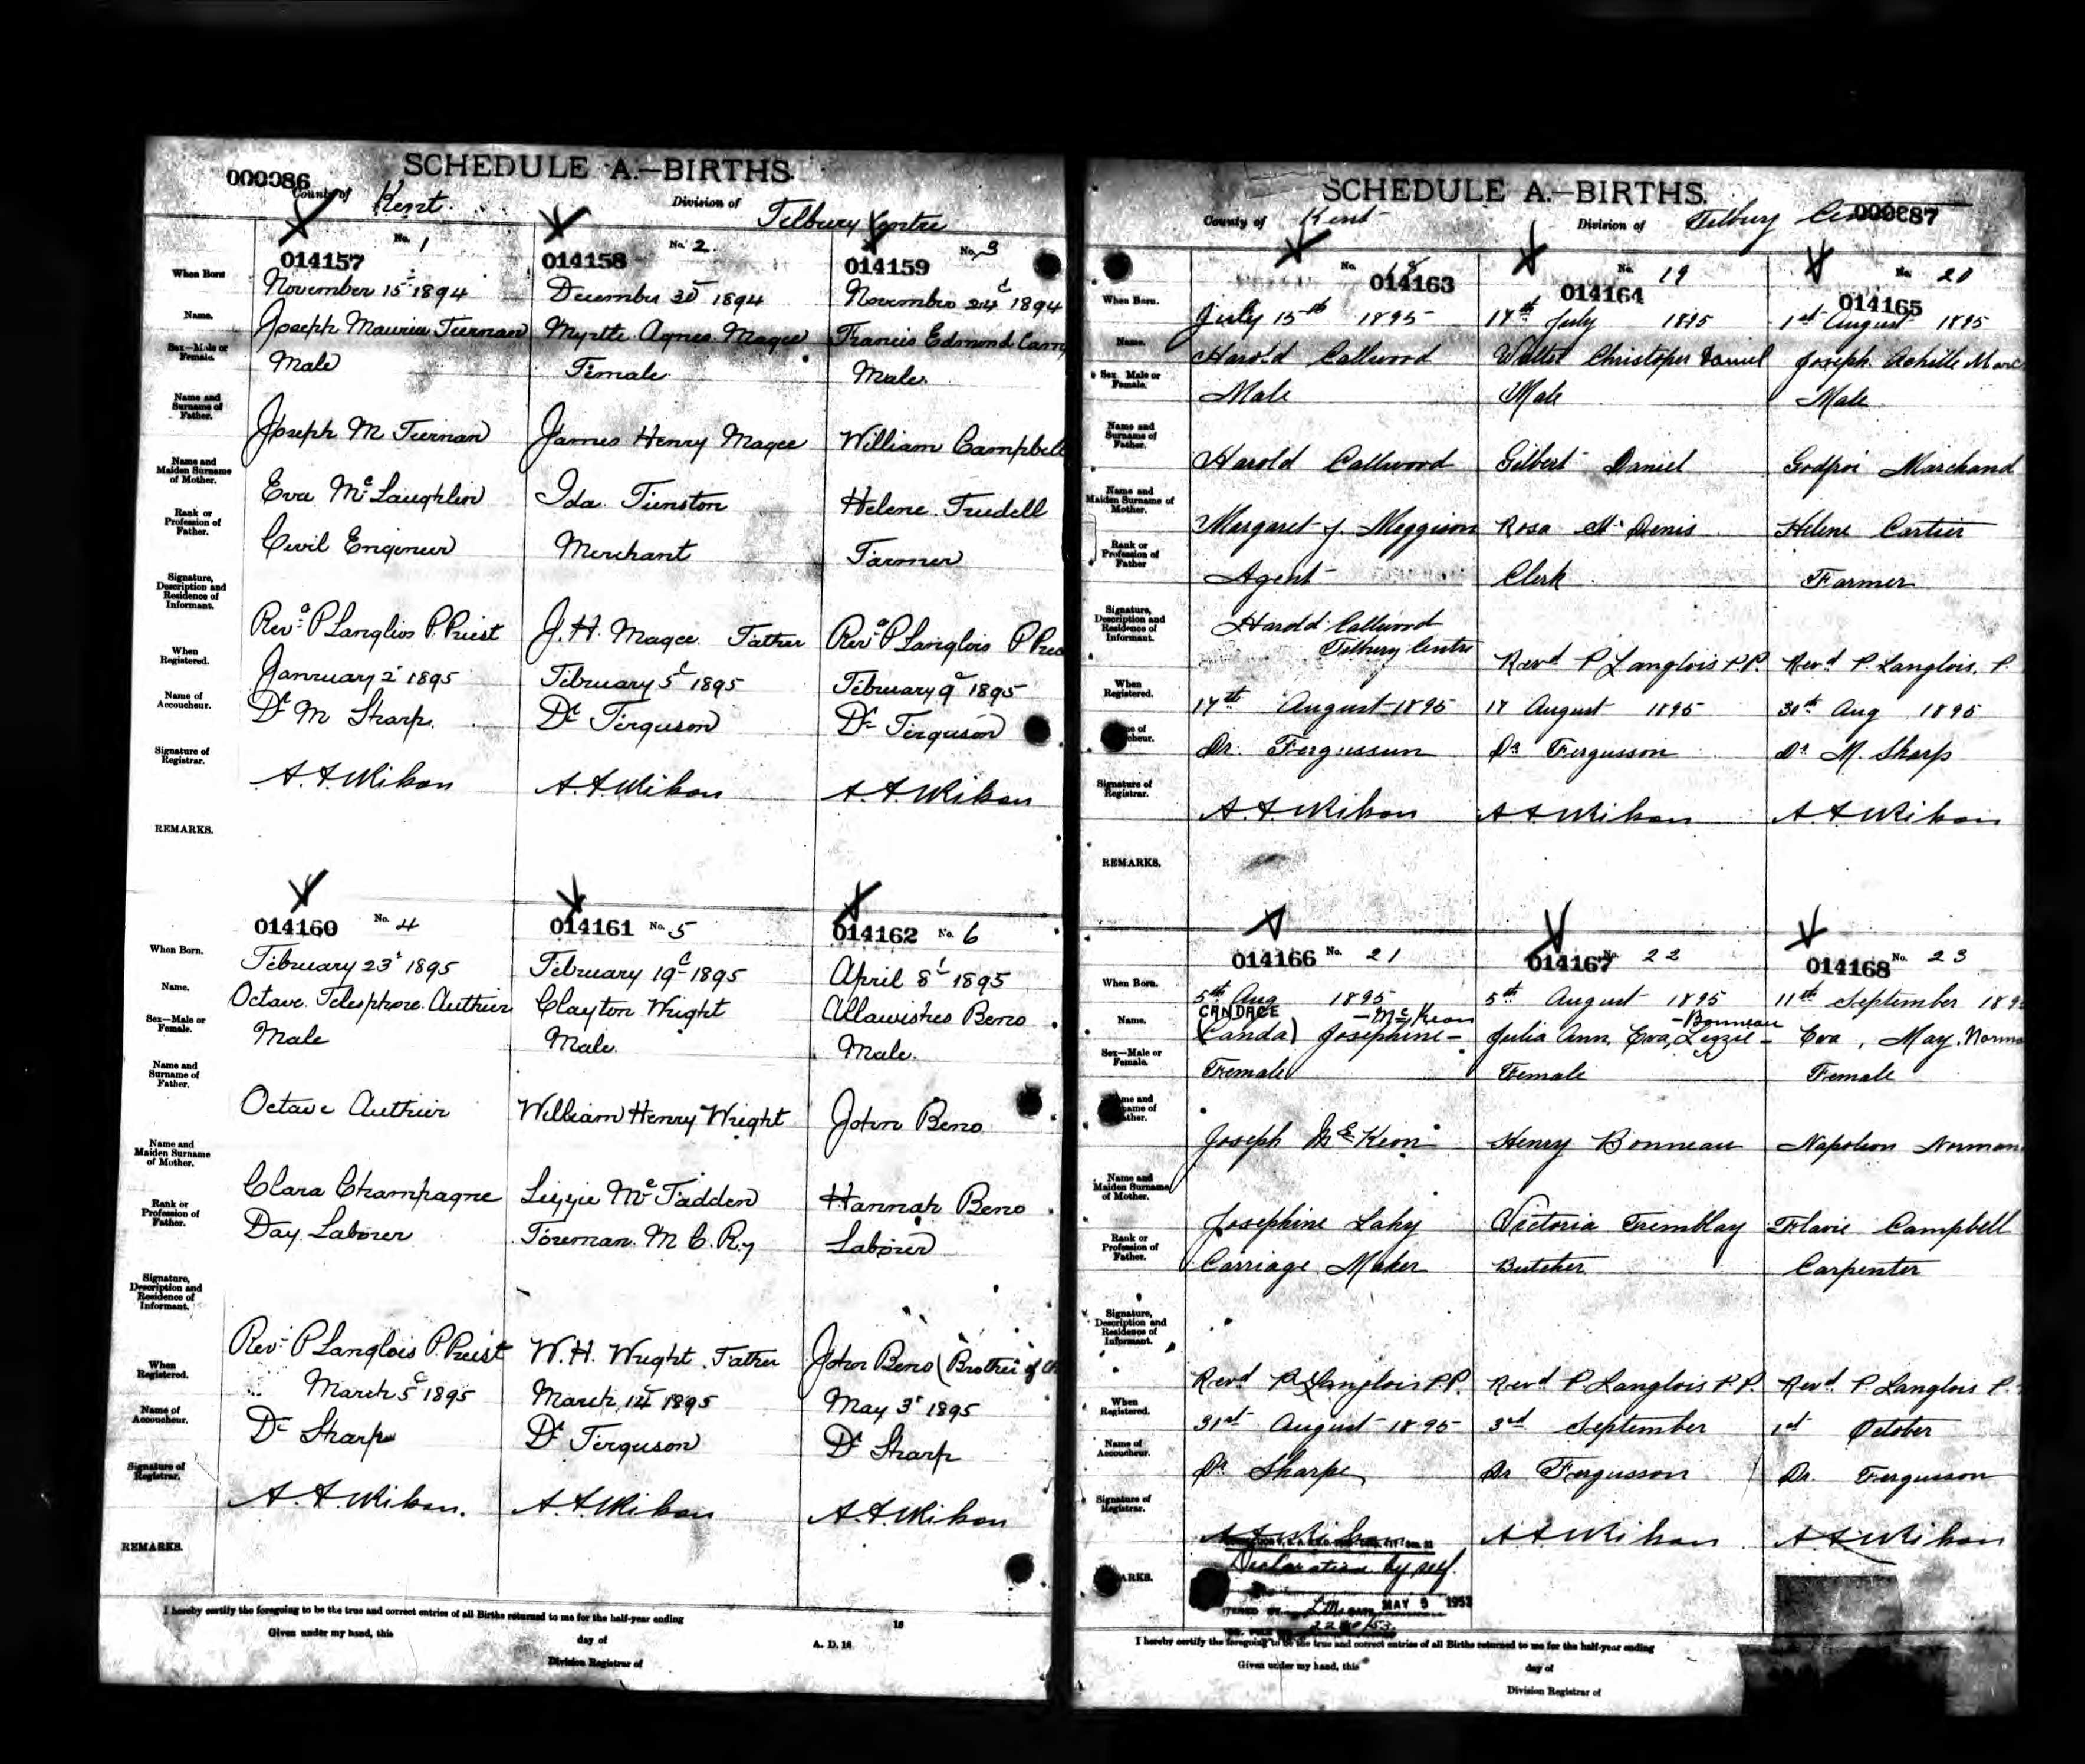 000086
SCHEDULE A.—BIRTHS.
County of Kent.
Division of Tilbury Centre
014157 No. 1
014158 No. 2
014159 No. 3
When Born
November 15 1894
December 30 1894
November 24 1894
Name.
Joseph Maurice Tiernan
Myrtle Agnes Magee
Francis Edmond
Sex—Male or Female.
Male
Female
Male
Name and Surname of Father.
Joseph M Tiernan
James Henry Magee
William Campbell
Name and Maiden Surname of Mother.
Eva McLaughlin
Ida
Helene Trudell
Rank or Profession of Father.
Civil Engineer
Merchant
Farmer
Signature, Description and Residence of Informant.
Revd P Langlois P. Priest
J. H. Magee Father
Revd P Langlois P
When Registered.
January 2 1895
February 5 1895
February 9 1895
Name of Accoucheur.
Dr M Sharp.
Dr Ferguson
Dr Ferguson
Signature of Registrar.
A. A. Wilson
A. A. Wilson
A. A. Wilson
REMARKS.
014160 No. 4
014161 No. 5
014162 No. 6
When Born.
February 23 1895
February 19 1895
April 8 1895
Name.
Octave Telesphore Authier
Clayton Wright
Beno
Sex—Male or Female.
Male
Male.
Male.
Name and Surname of Father.
Octave Authier
William Henry Wright
John Beno
Name and Maiden Surname of Mother.
Clara Champagne
Lizzie McFadden
Hannah Beno
Rank or Profession of Father.
Day Laborer
Foreman M C. Ry
Laborer
Signature, Description and Residence of Informant.
Rev. P Langlois P. Priest
W. H. Wright Father
John Beno (Brother of
When Registered.
March 5 1895
March 14 1895
May 3 1895
Name of Accoucheur.
Dr Sharp
Dr Ferguson
Dr Sharp
Signature of Registrar.
A. A. Wilson.
A. A. Wilson
A. A. Wilson
REMARKS.
I hereby certify the foregoing to be the true and correct entries of all Births returned to me for the half-year ending 18
Given under my hand, this day of A. D. 18
Division Registrar of
SCHEDULE A.—BIRTHS.
County of Kent
Division of Tilbury
000087
No. 18 014163
No. 19 014164
No. 20 014165
When Born.
July 15th 1895
17th July 1895
1st August 1895
Name.
Harold Callwood
Walter Christopher Daniel
Joseph Achille
Sex Male or Female.
Male
Male
Male
Name and Surname of Father.
Harold Callwood
Gilbert Daniel
Godfroi Marchand
Name and Maiden Surname of Mother.
Margaret J. Meggison
Rosa St Denis
Helene Cartier
Rank or Profession of Father
Agent
Clerk
Farmer
Signature, Description and Residence of Informant.
Harold Callwood
Tilbury Centre
Revd P Langlois P.P.
Revd P. Langlois. P.
When Registered.
17th August 1895
17 August 1895
30th Aug 1895
Dr. Fergusson
Dr Fergusson
Dr M. Sharp
Signature of Registrar.
A. A. Wilson
A A Wilson
A A Wilson
REMARKS.
014166 No. 21
014167 No. 22
014168 No. 23
When Born.
5th Aug 1895
5th August 1895
11th September
Name.
CANDACE — McKeon
(Canda) Josephine —
— Bonneau
Julia Ann, Eva, Lizzie —
Eva, May,
Sex—Male or Female.
Female
Female
Female
Joseph McKeon
Henry Bonneau
Napoleon
Name and Maiden Surname of Mother.
Josephine Lahy
Victoria Tremblay
Flavie Campbell
Rank or Profession of Father.
Carriage Maker
Butcher
Carpenter
Signature, Description and Residence of Informant.
Revd P Langlois P.P.
Revd P Langlois P.P.
Revd P. Langlois P.
When Registered.
31st August 1895
3rd September
1st October
Name of Accoucheur.
Dr Sharpe
Dr Fergusson
Dr. Fergusson
Signature of Registrar.
A A Wilson
A A Wilson
A A Wilson
Declaration by self.
MAY 5
I hereby certify the foregoing to be the true and correct entries of all Births returned to me for the half-year ending
Given under my hand, this day of
Division Registrar of